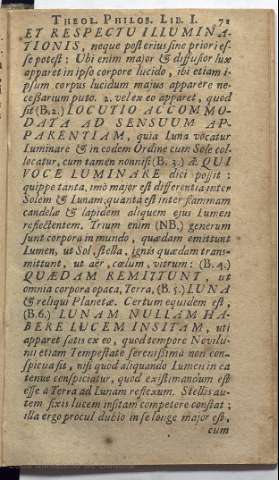 THEOL. PHILOS. LIB. I. 71
ET RESPECTU ILLUMINA-
TIONIS, neque posterius sine priori es-
se potest: Ubi enim major & diffusior lux
apparet in ipso corpore lucido, ibi etiam i-
psum corpus lucidum majus apparere ne-
cessarium puto. 2. vel ex eo apparet, quod
sit (B. 2.) LOCUTIO ACCOMMO-
DATA AD SENSUUM AP-
PARENTIAM, quia Luna vocatur
Luminare & in eodem Ordine cum Sole col-
locatur, cum tamen nonnisi (B. 3.) ÆQUI
VOCE LUMINARE dici possit:
quippe tanta, imò major est differentia inter
Solem & Lunam, quanta est inter flammam
candelæ & lapidem aliquem ejus Lumen
reflectentem. Trium enim (NB.) generum
sunt corpora in mundo, quædam emittunt
Lumen, ut Sol, stella, ignis quædam trans-
mittunt, ut aër, cœlum, vitrum: (B. 4.)
QUÆDAM REMITTUNT, ut
omnia corpora opaca, Terra, (B. 5.) LUNA
& reliqui Planetæ. Certum equidem est,
(B. 6.) LUNAM NULLAM HA-
BERE LUCEM INSITAM, uti
apparet satis ex eo, quod tempore Novilu-
nii etiam Tempestate serenissimâ non con-
spicua sit, nisi quod aliquando Lumen in ea
tenue conspiciatur, quod existimandum est
esse à Terra ad Lunam reflexum. Stellis au-
tem fixis lucem insitam competere constat;
illa ergo procul dubio in se longe major est,
cum